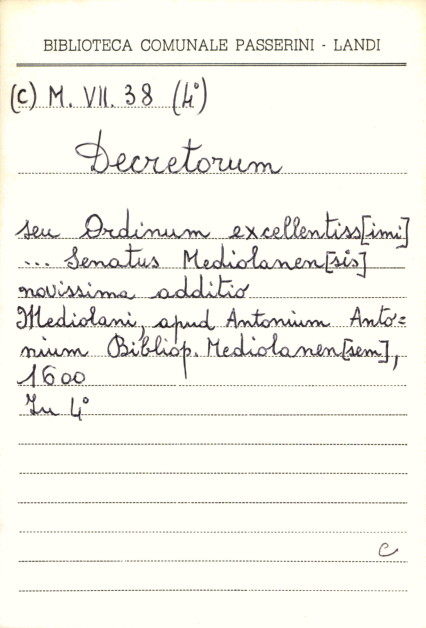 BIBLIOTECA COMUNALE PASSERINI - LANDI
(C) M. VII. 38 (4°)
Decretorum
seu Ordinum excellentiss[imi]
... Senatus Mediolanen[sis]
novissima additio
Mediolani, apud Antonium Anto=
nium Bibliop. Mediolanen[sem],
1600
In 4°
C